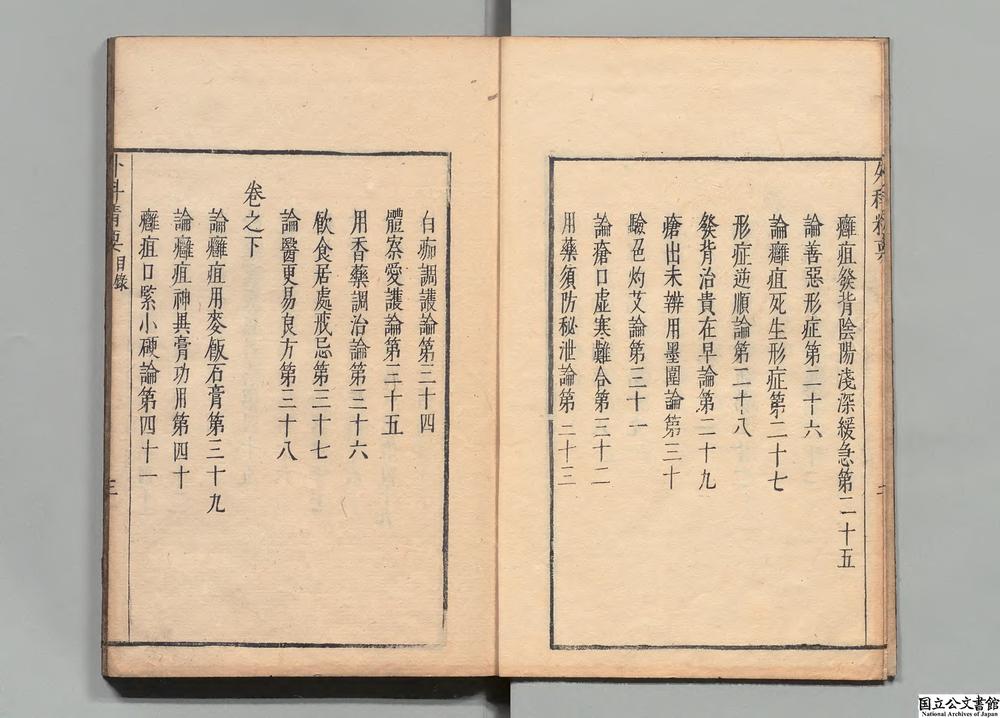 外科精要
癰疽發背陰陽淺深緩急第二十五
論善惡形症第二十六
論癰疽死生形症第二十七
形症逆順論第二十八
發背治貴在早論第二十九
瘡出未辨用墨圍論第三十
驗色灼艾論第三十一
論瘡口虛寒難合第三十二
用藥須防秘泄論第三十三
白痂調護論第三十四
體察愛護論第三十五
用香藥調治論第三十六
飲食居處戒忌第三十七
論醫更易良方第三十八
卷之下
論癰疽用麥飯石膏第三十九
論癰疽神異膏功用第四十
癰疽口緊小硬論第四十一
外科精要 目錄
三
国立公文書館
National Archives of Japan